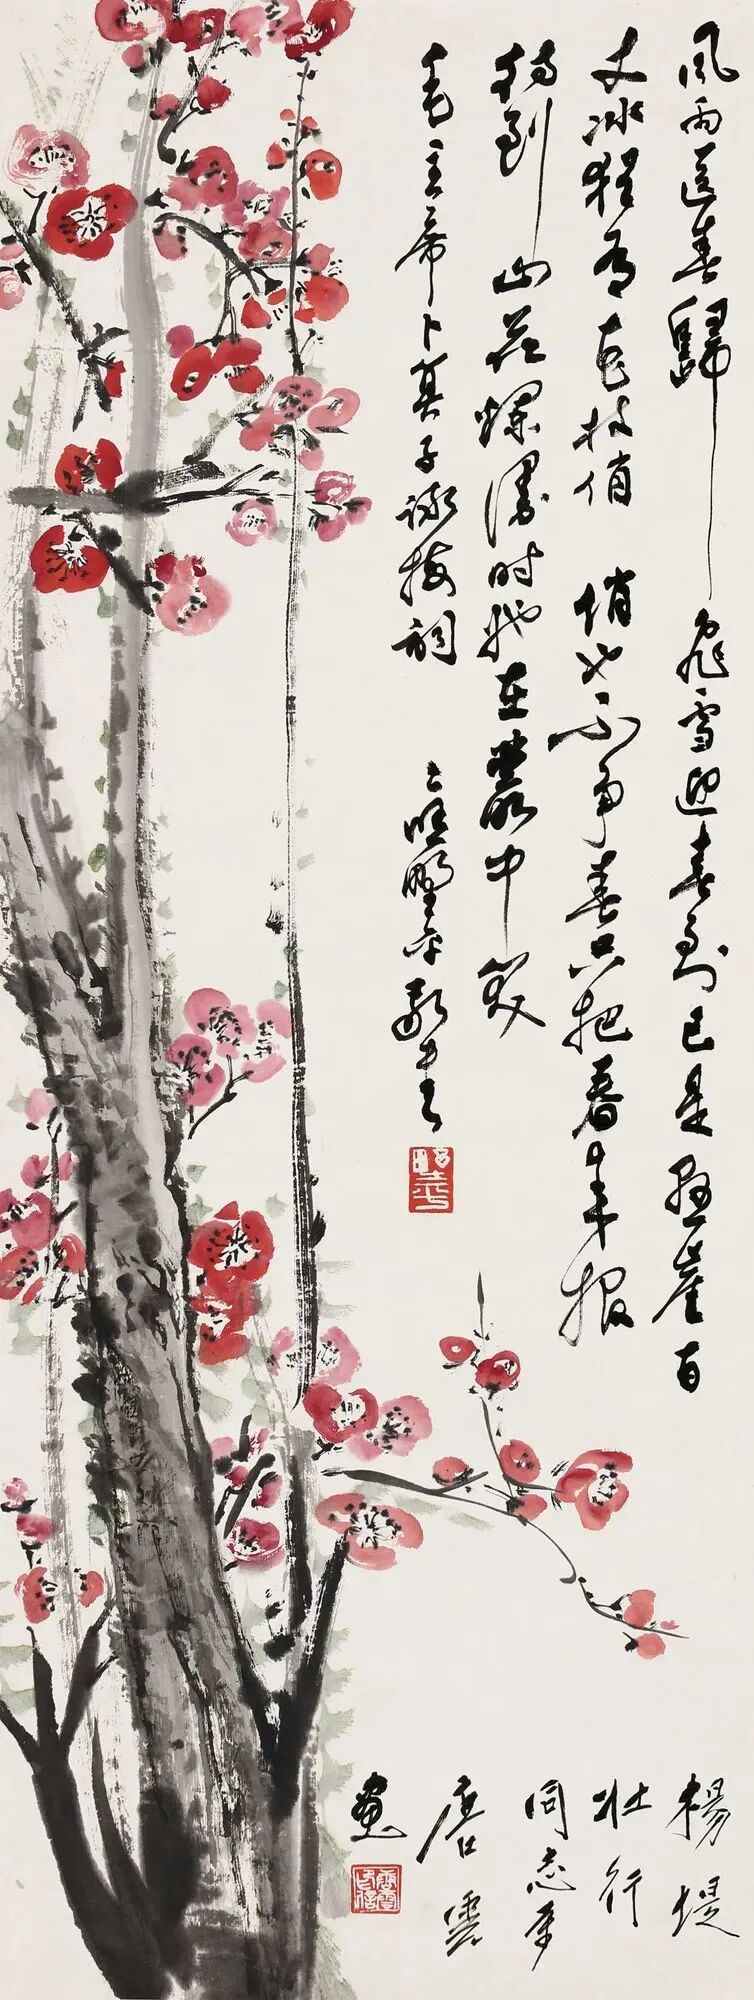 風雨送春歸 飛雪迎春到 已是悬崖百
丈冰 猶有花枝俏 俏也不争春 只把春来报
待到山花爛漫时 她在叢中笑
毛主席卜算子詠梅詞 野平敬书
楊堤
壮行
同志属
唐雲
画